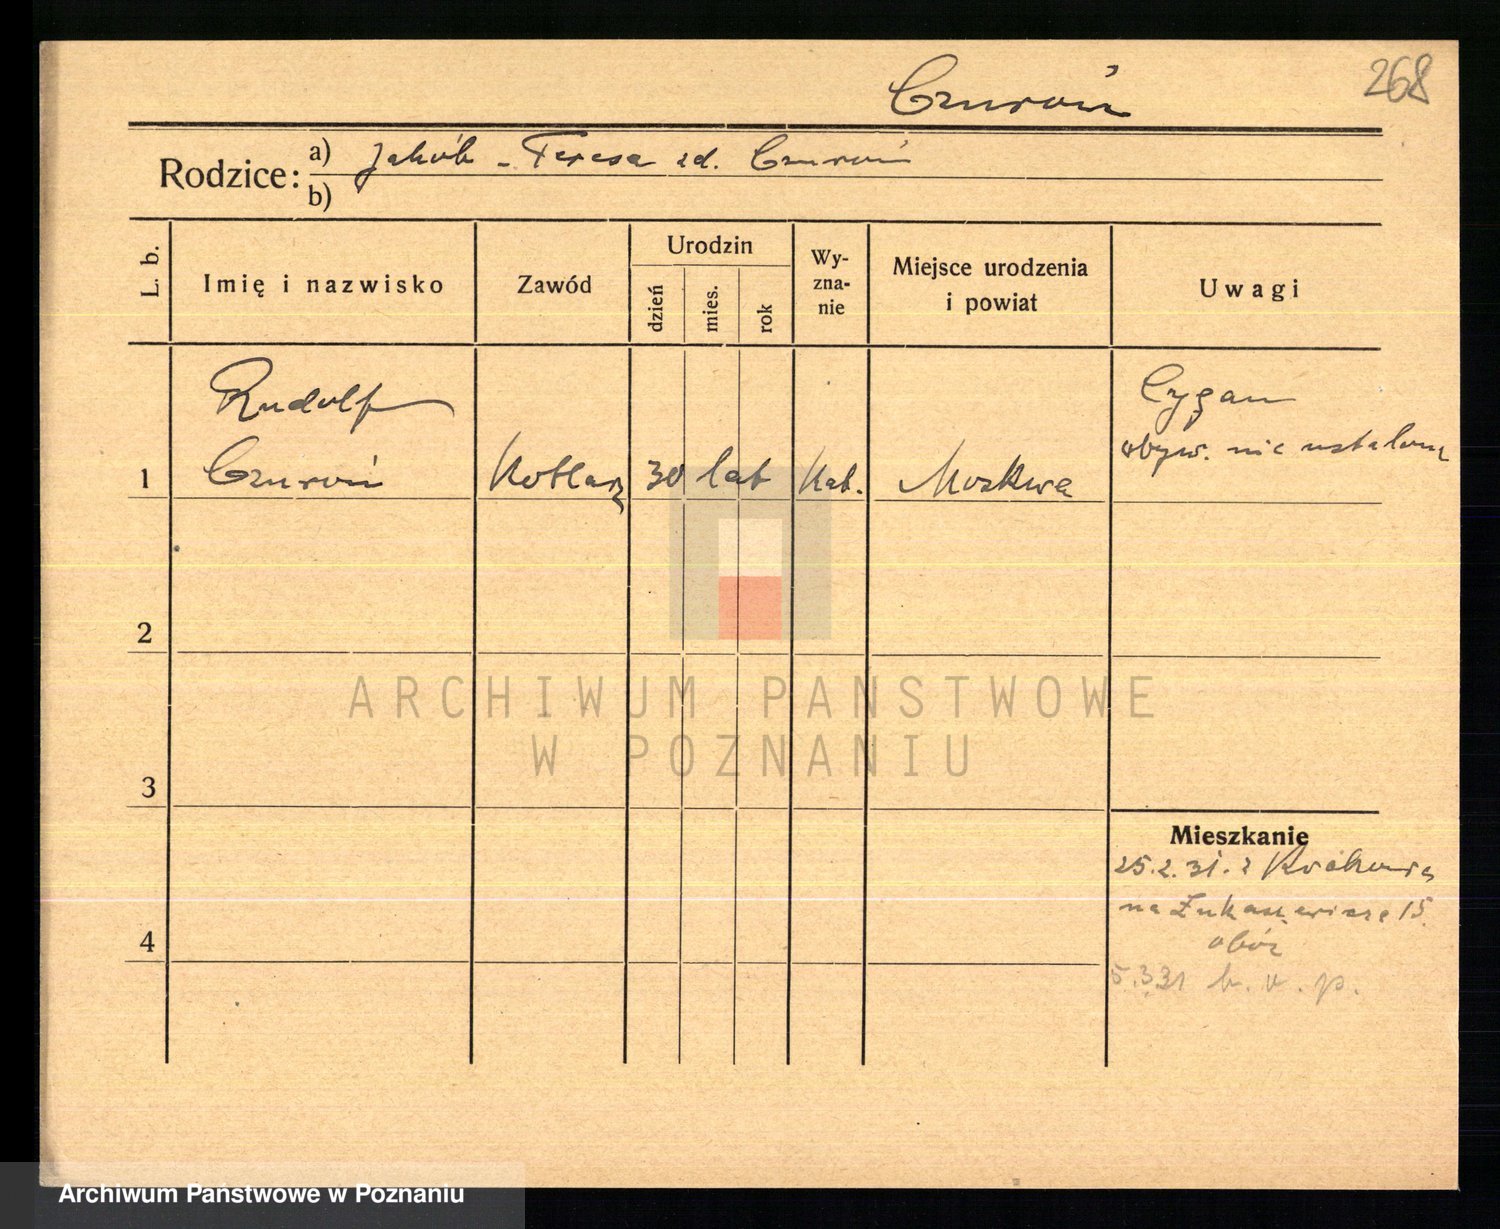 Czuroń
268
Rodzice:
a) Jakób - Teresa zd. Czuroń
b)
L. b.
Imię i nazwisko
Zawód
Urodzin
dzień
mies.
rok
Wy-
zna-
nie
Miejsce urodzenia
i powiat
Uwagi
Rudolf
Czuroń
1
Kotlarz
30 lat
Kat.
Moskwa
Cygan
obyw. nie ustalone
2
3
4
Mieszkanie
25.2.31. z Krakowa
na Łukaszewicza 15
obóz
5.3.31 b. v. p.
ARCHIWUM PAŃSTWOWE
W POZNANIU
Archiwum Państwowe w Poznaniu